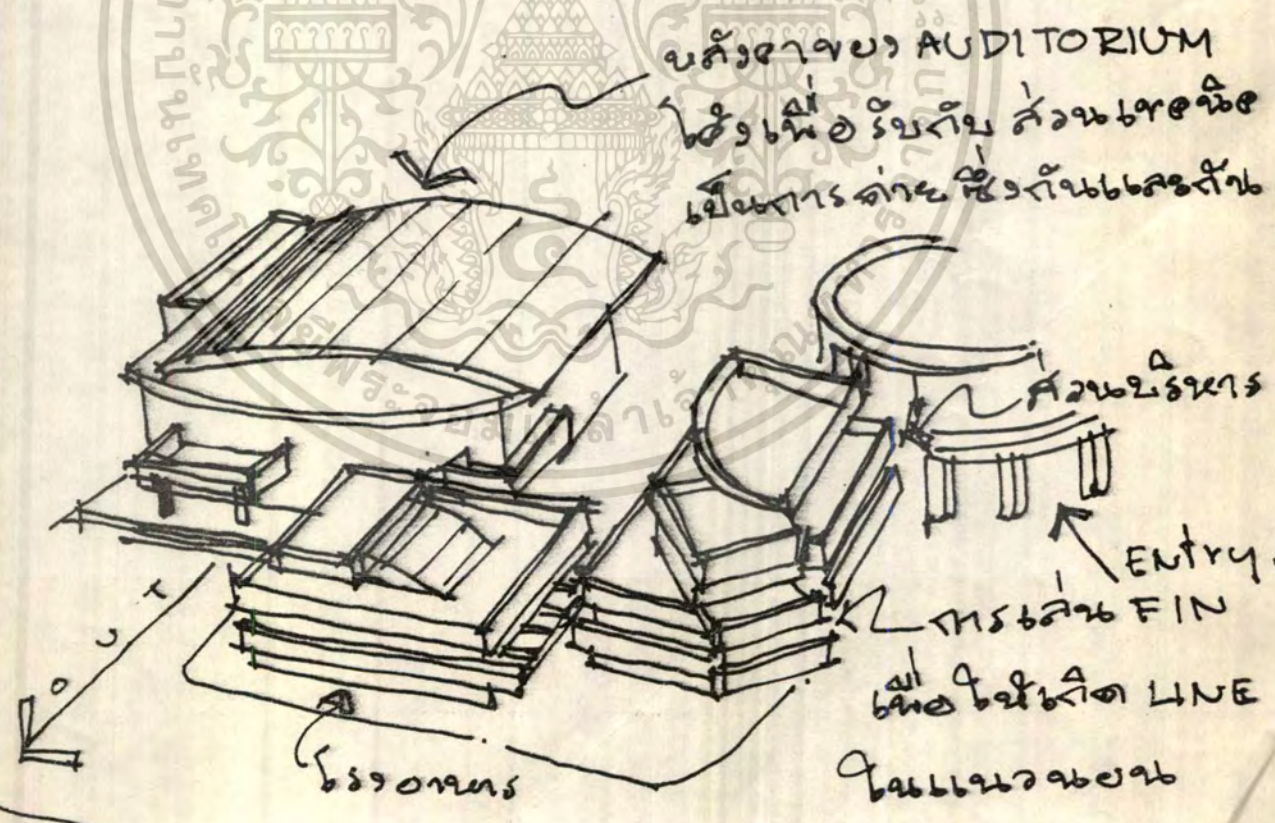 หลังคาของ AUDITORIUM
โค้งเพื่อรับกับ ส่วนเทคนิค
เป็นการถ่ายซึ่งกันและกัน
ส่วนบริหาร
ENtry.
การเล่น FIN
เพื่อให้เกิด LINE
ในแนวนอน
โรงอาหาร
OUT